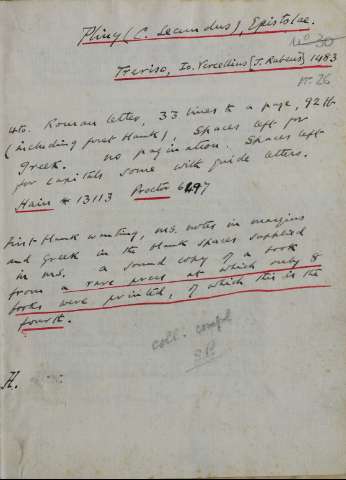 Pliny (C. Secundus), Epistolae.
No 30
Treviso, Io. Vercellius [J. Rubeus] 1483
no. 26
4to. Roman letter, 33 lines to a page, 92 ll.
(including first blank), Spaces left for
Greek. no pagination. Spaces left
for capitals some with guide letters.
Hain * 13113 Proctor 6497
First blank wanting, ms. notes in margins
and Greek in the blank spaces supplied
in ms. a sound copy of a book
from a rare press at which only 8
books were printed, of which this is the
fourth.
coll. compl
H.